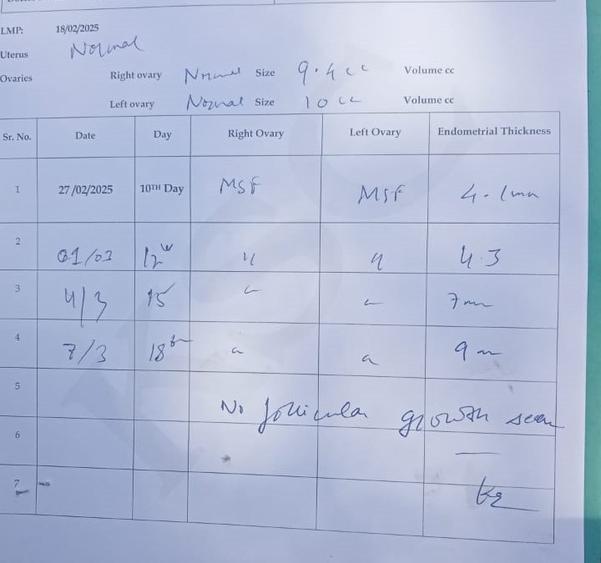 LMP: 18/02/2025
Uterus Normal
Ovaries Right ovary Normal Size 9.4 cc Volume cc
Left ovary Normal Size 10 cc Volume cc
Sr. No. Date Day Right Ovary Left Ovary Endometrial Thickness
1 27/02/2025 10TH Day MSF MSF 4.1mm
2 01/03 12 " " 4.3
3 4/3 15 " " 7mm
4 7/3 18th " " 9 m
5
No follicular growth seen
6
7